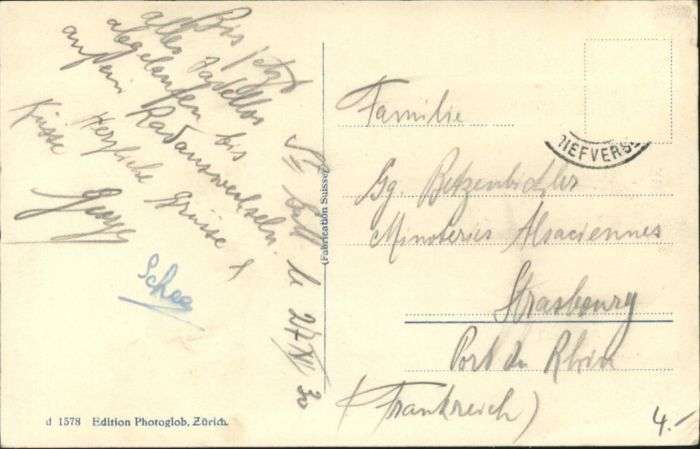 Bis jetzt
alles tadellos
abgelaufen bis
auf ein Radauswechseln.
Herzliche Grüsse &
Küsse
le 27 XII 30
(Fabrication Suisse)
Familie
Gg. Betzenbichler
Minoteries Alsaciennes
Strasbourg
Port du Rhin
(Frankreich)
BRIEFVERS
d 1578 Edition Photoglob, Zürich.
4.-